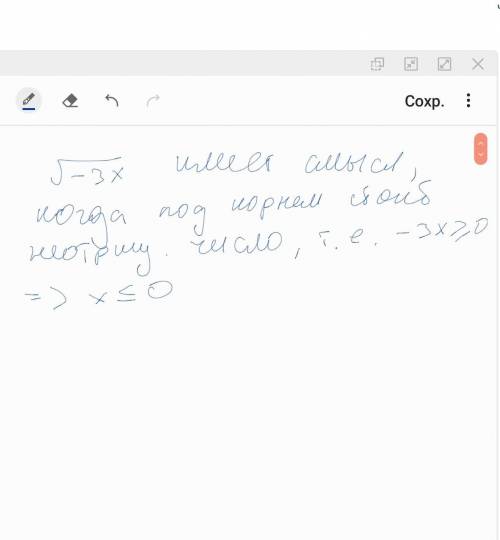 Сохр.
√-3x имеет смысл,
когда под корнем стоит
неотриц. число, т.е. -3x≥0
=> x ≤ 0